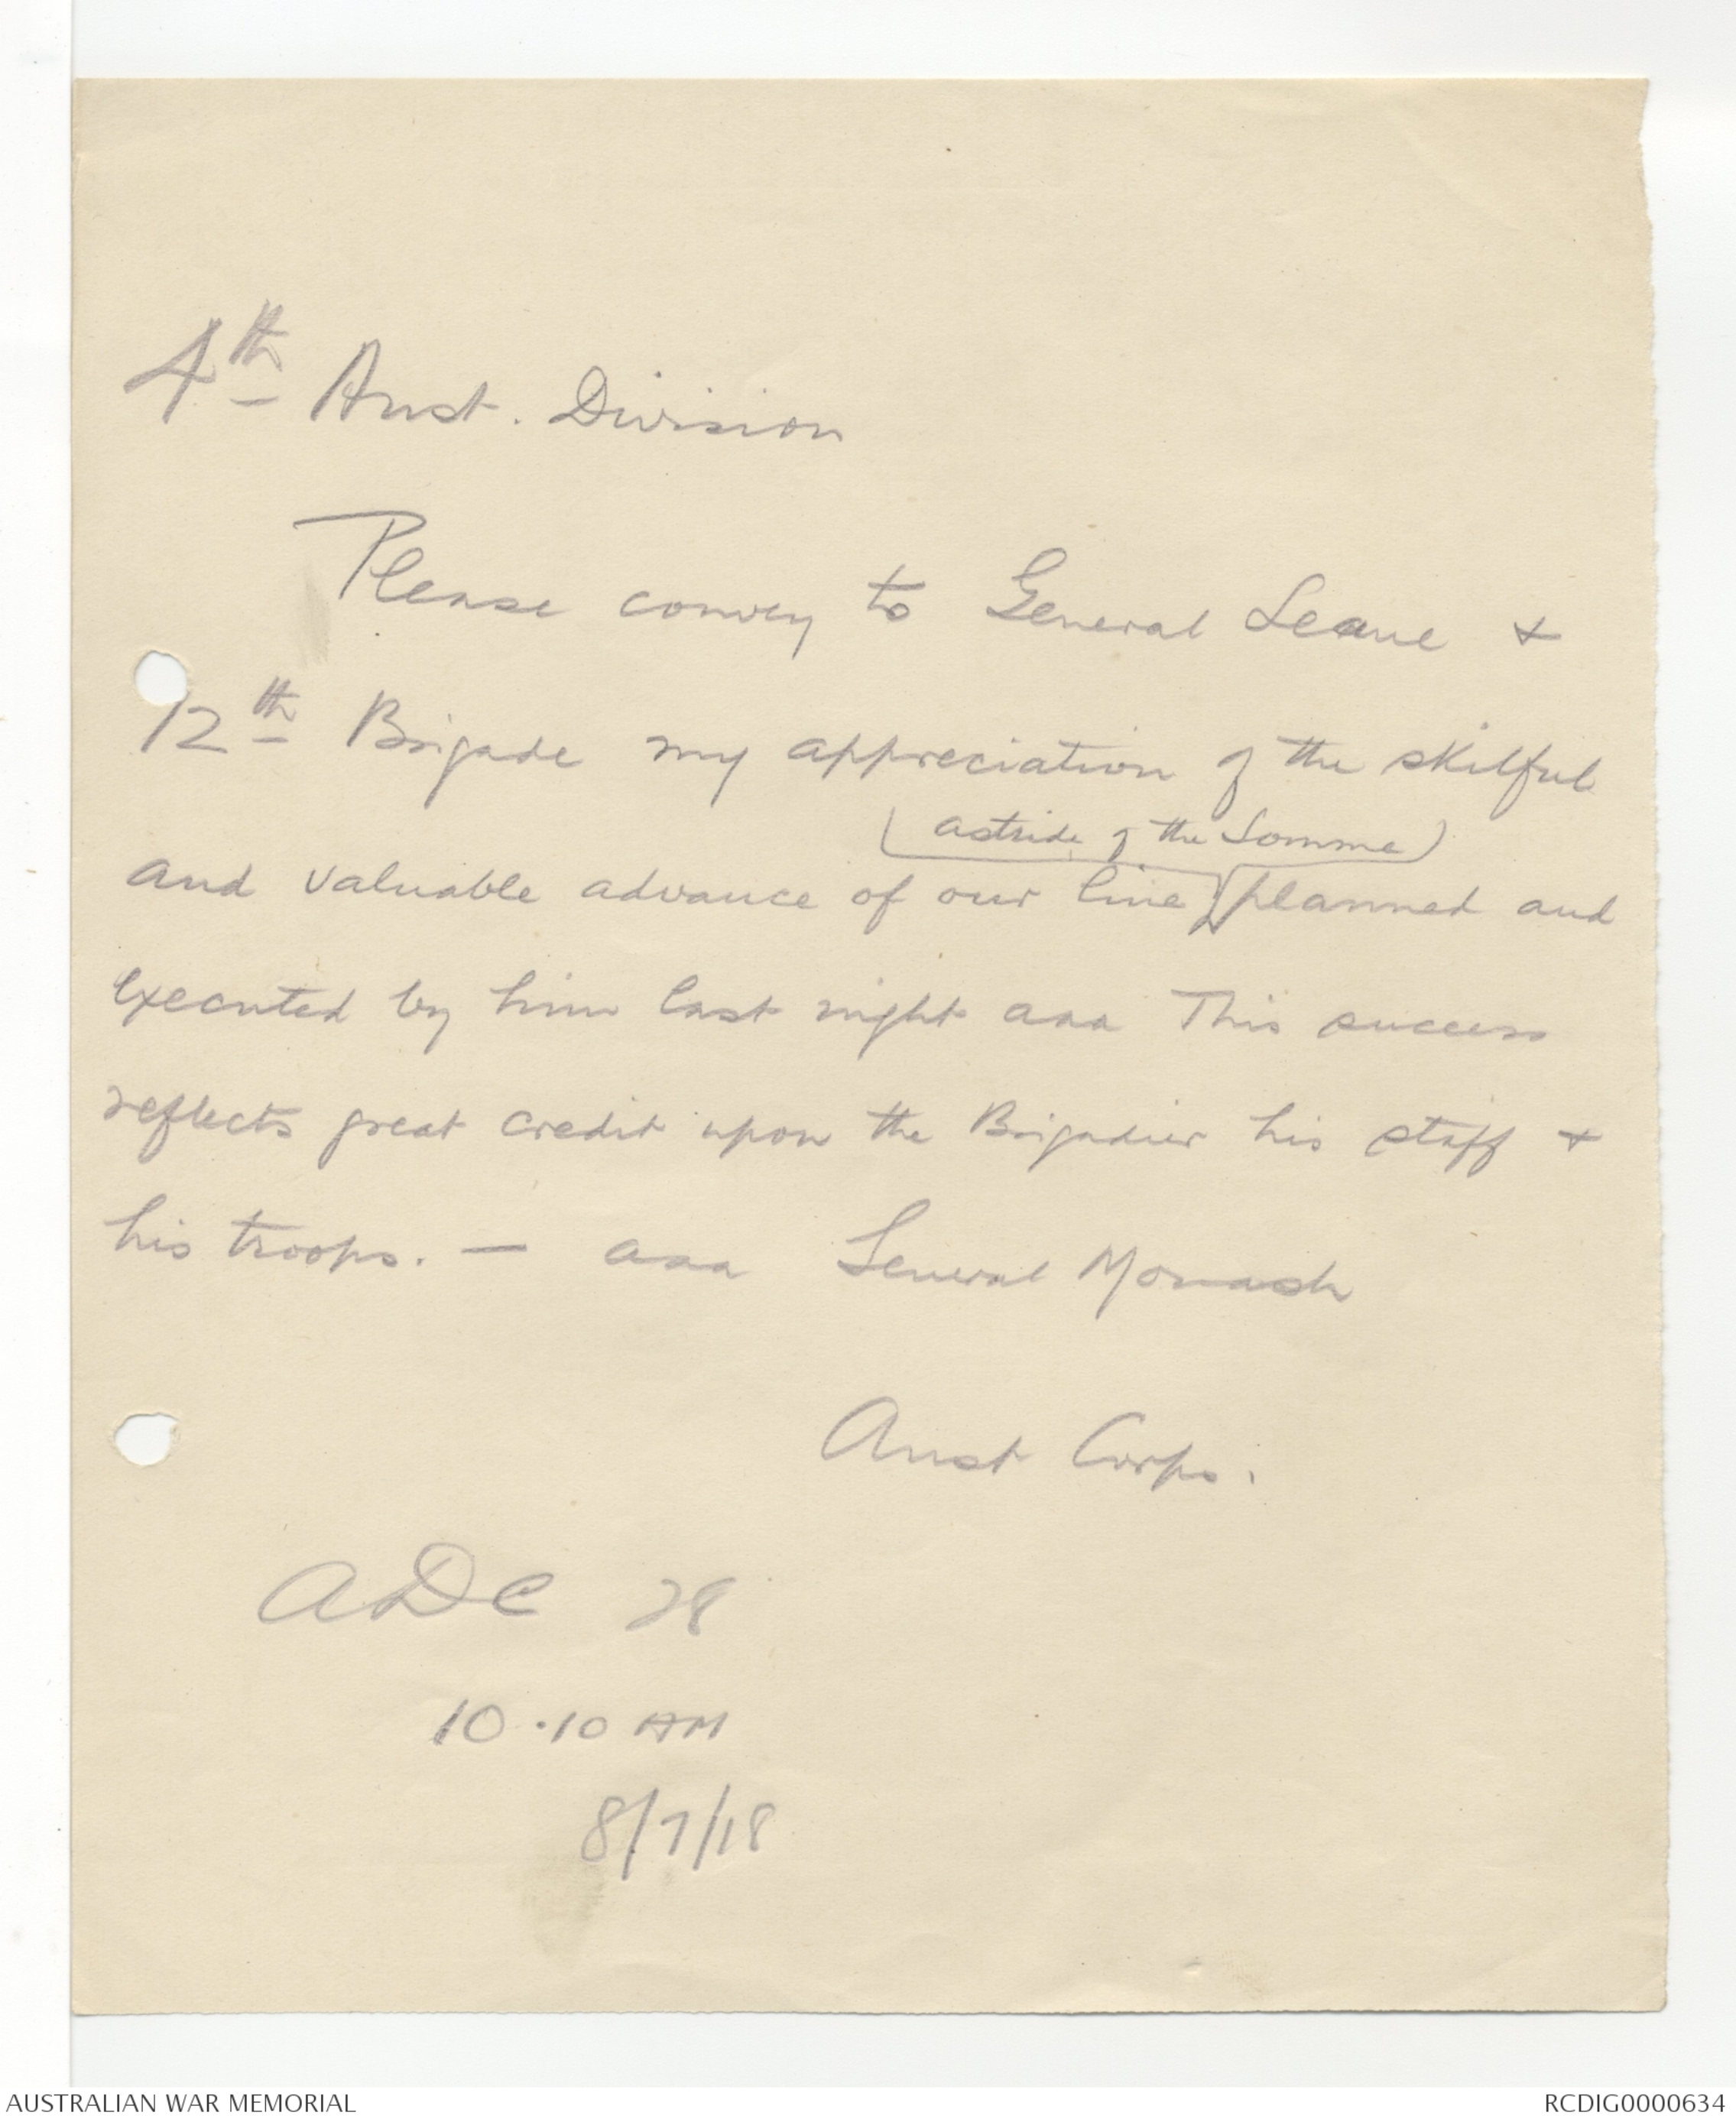 4th Aust. Division
Please convey to General Leane &
12th Brigade my appreciation of the skilful
(astride of the Somme)
and valuable advance of our line planned and
executed by him last night aaa This success
reflects great credit upon the Brigadier his staff &
his troops. — aaa General Monash
Aust Corps.
ADC 28
10.10 AM
8/7/18
AUSTRALIAN WAR MEMORIAL
RCDIG0000634